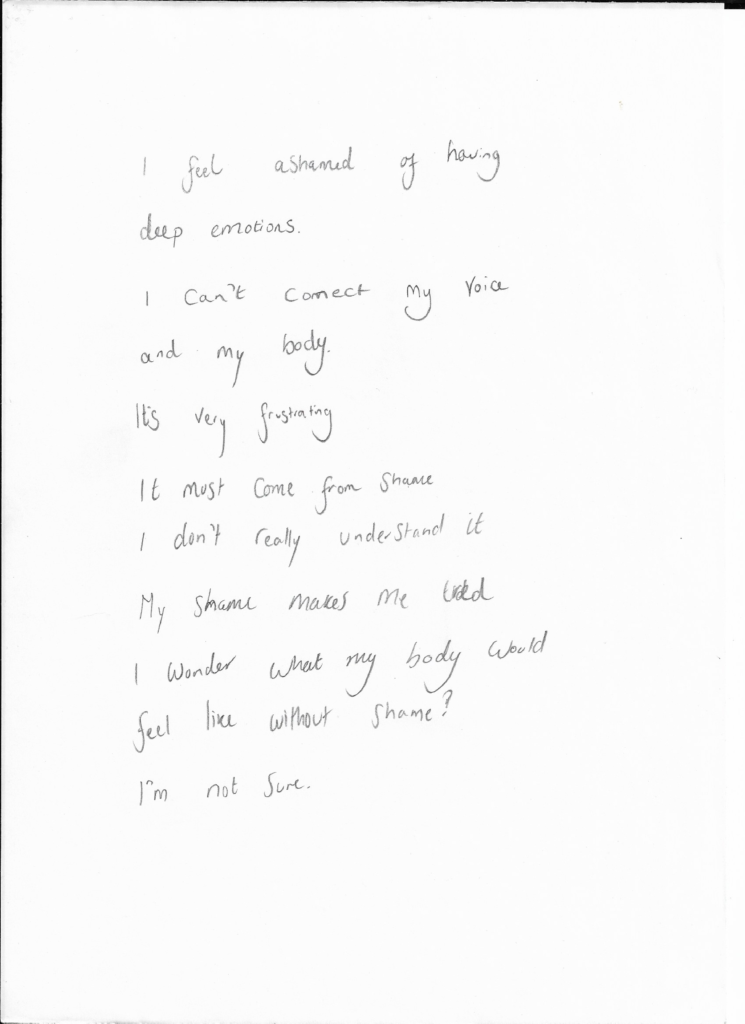 I feel ashamed of having
deep emotions.
I can't connect my voice
and my body.
It's very frustrating
It must come from shame
I don't really understand it
My shame makes me
I wonder what my body would
feel like without shame?
I'm not sure.